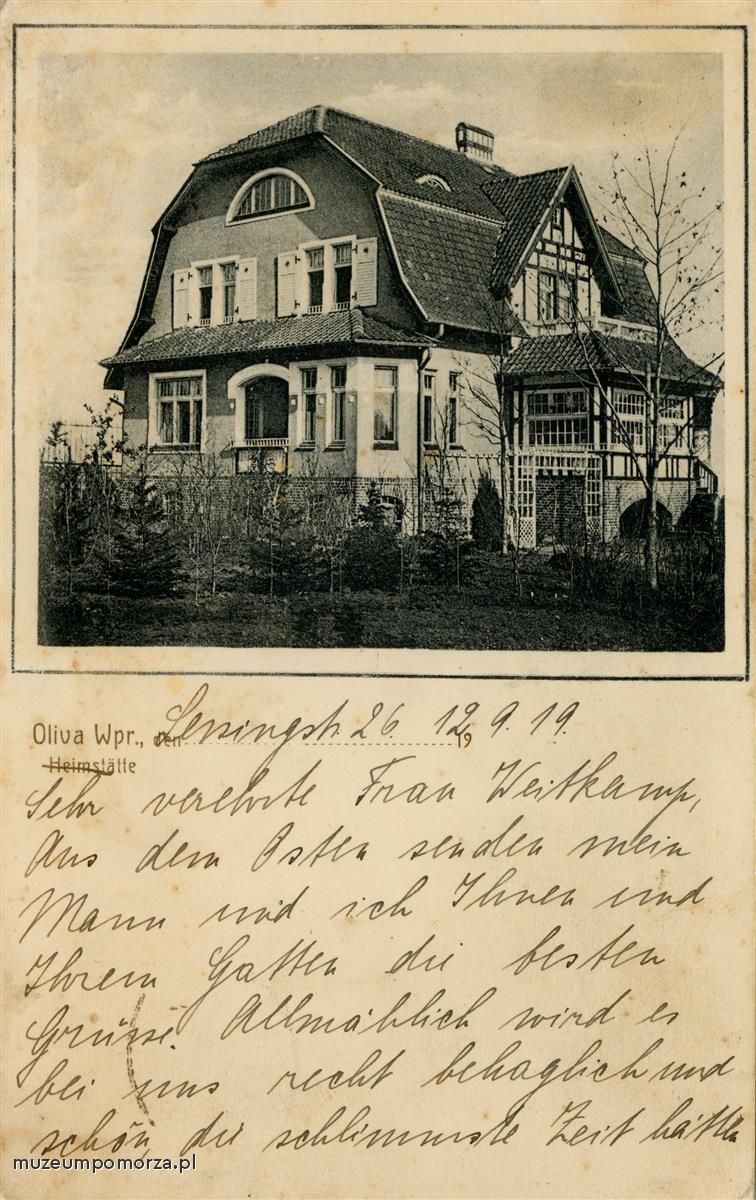 Oliva Wpr., den Lessingstr. 26. 12. 9. 19.
19
Heimstätte
Sehr verehrte Frau Weitkamp,
Aus dem Osten senden mein
Mann und ich Ihnen und
Ihrem Gatten die besten
Grüsse. Allmählich wird es
bei uns recht behaglich und
schön, die schlimmste Zeit hätten
muzeumpomorza.pl